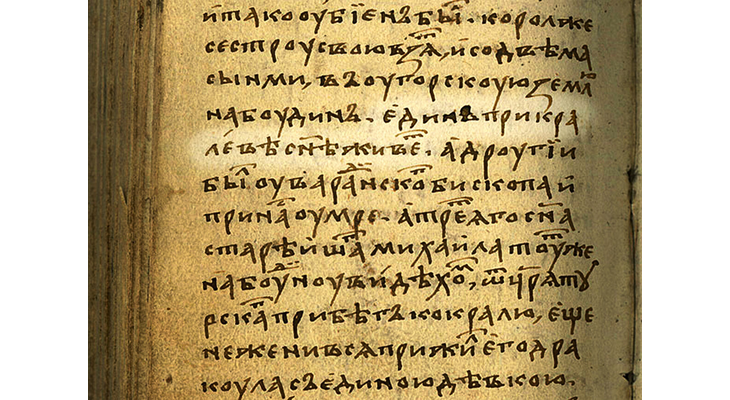 и тако оубіенъ бы̑. король же
сестроу свою взѧ̑, и со двѣма
сынми, въ оугорскоую землю
на боудинъ. единъ при кра
лѣвѣ сн҃ѣ живе̑. а дроугіи
бы̑ оу варданскаго бискоупа и
при на̑ оумре. а третѧго сн҃а
старѣишаго михаила тоу же
на боудинѣ видѣхо̑, ѿ царѧ тоу
рскаго прибѣгъ ко кралю, еще
не женивсѧ прижи̑ его дра
коула съ единою дѣвкою.